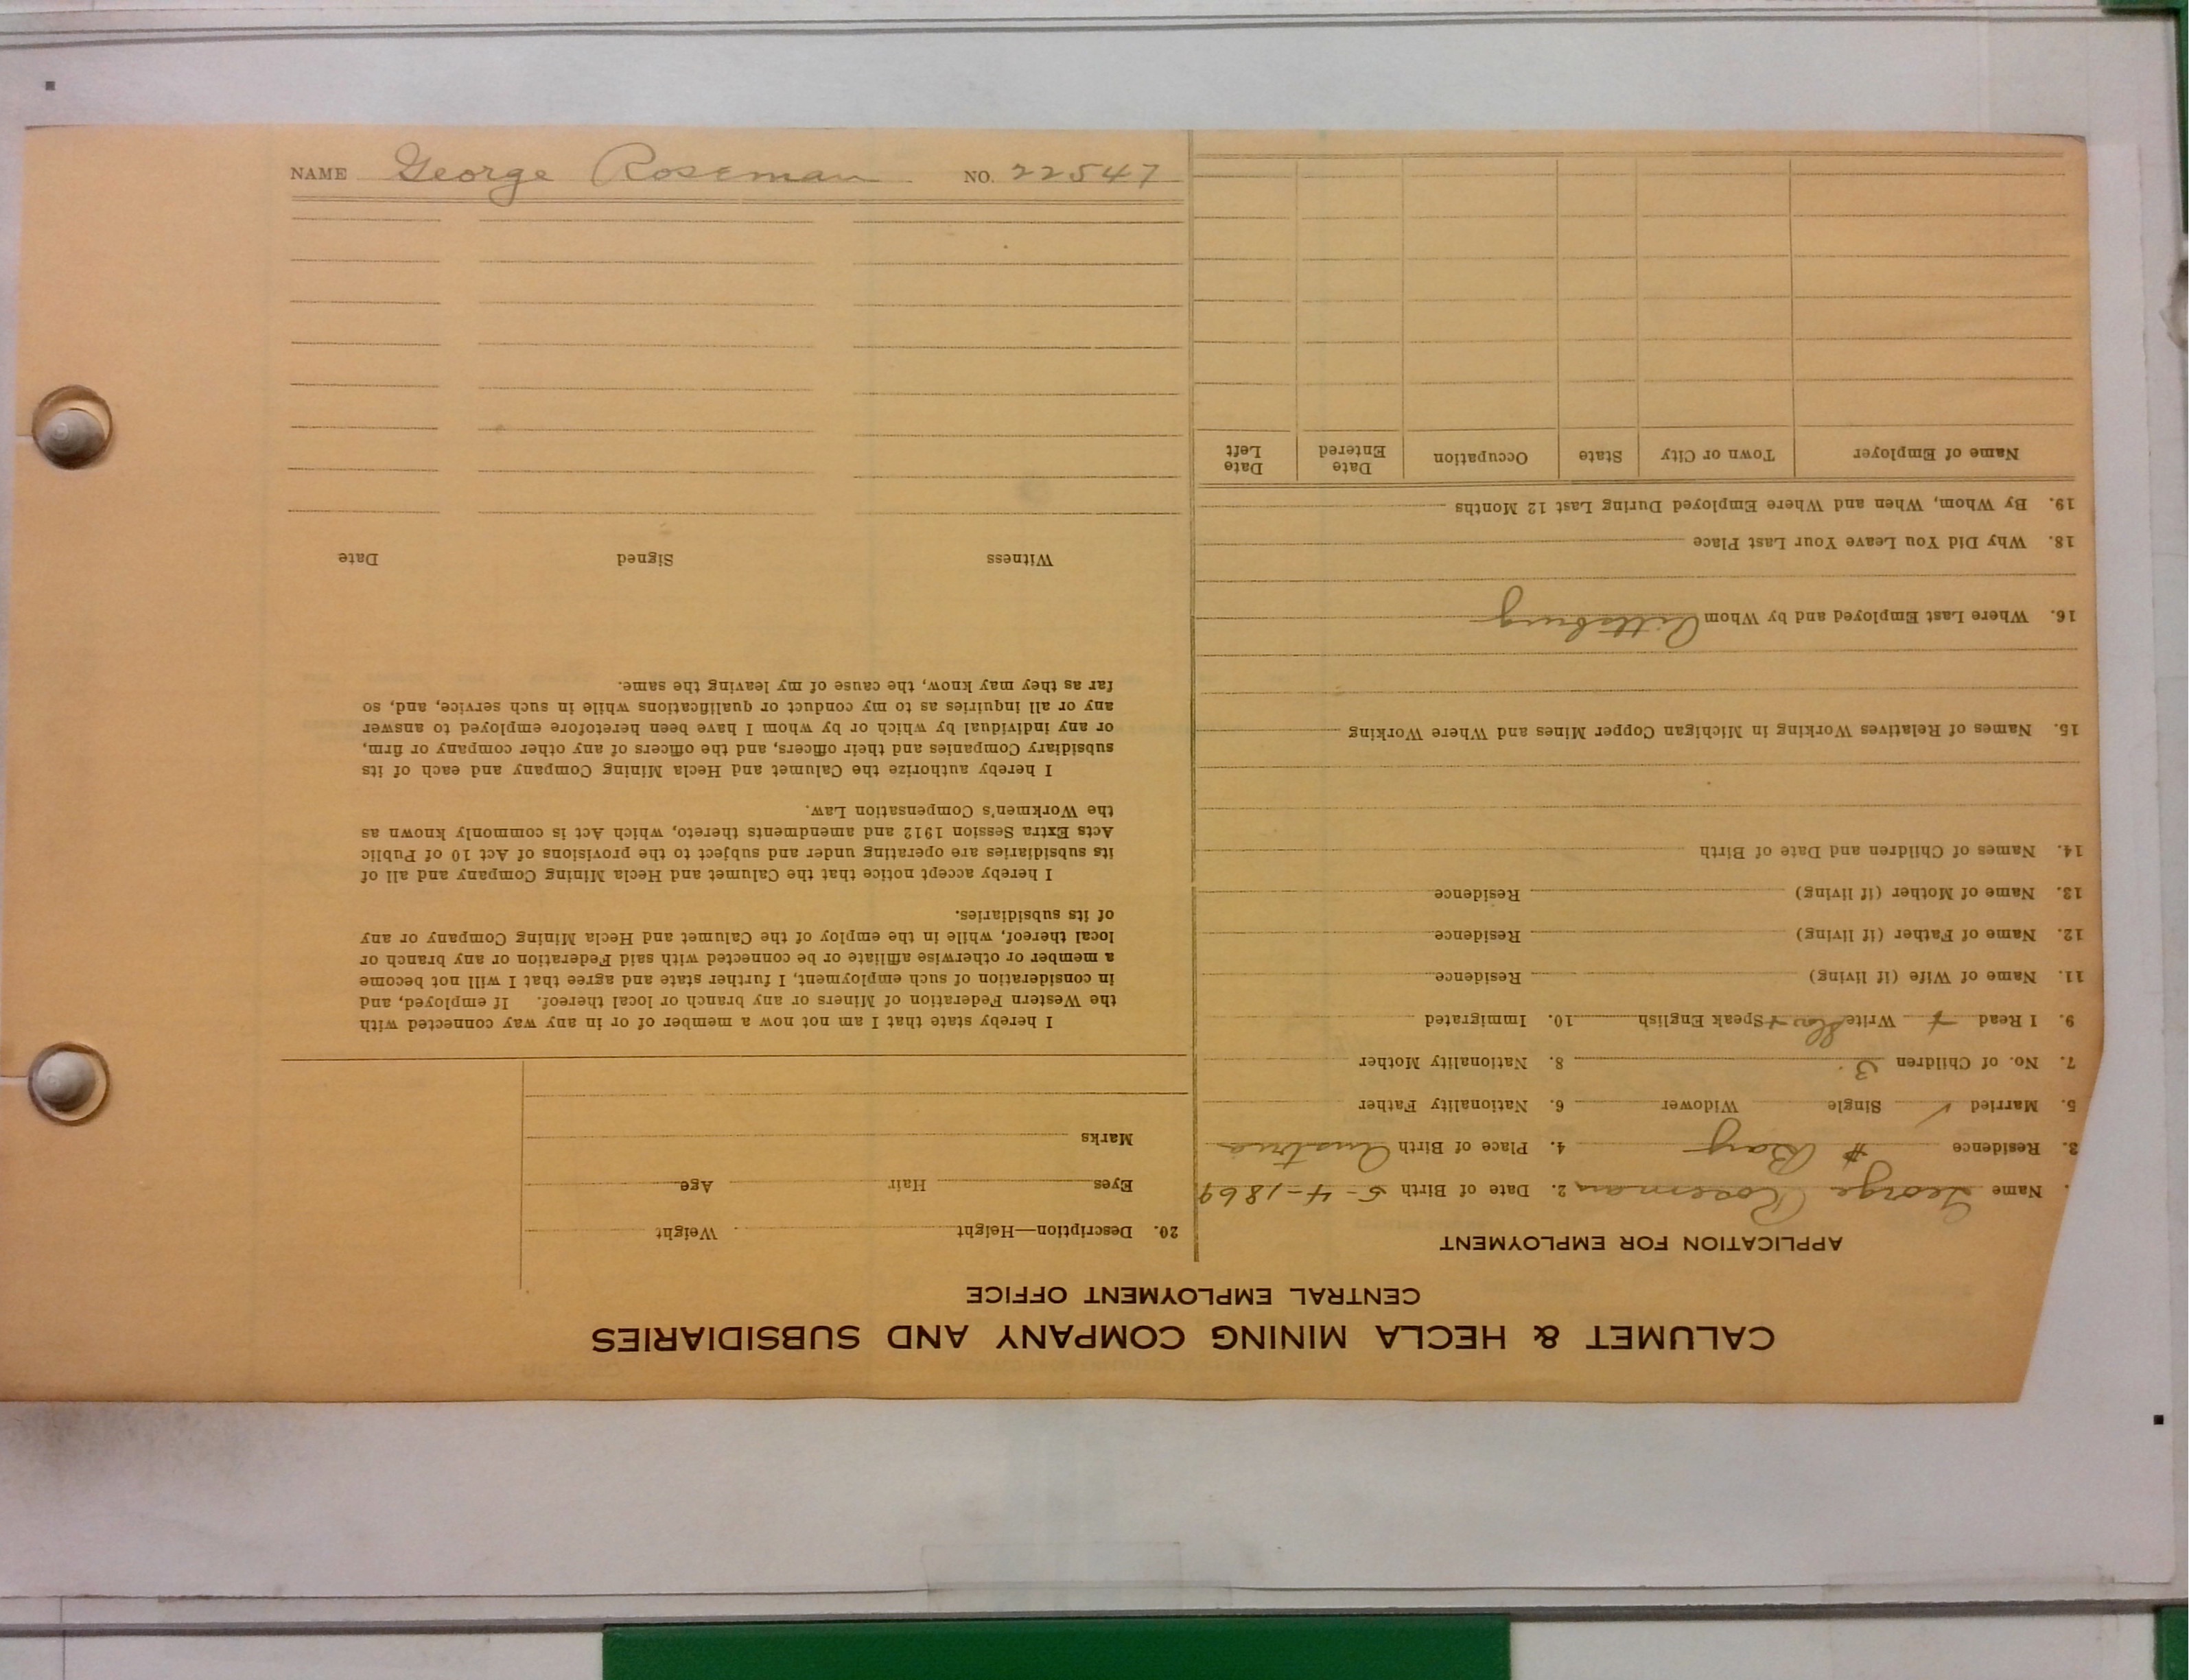 NAME George Roseman NO. 22547
CALUMET & HECLA MINING COMPANY AND SUBSIDIARIES
CENTRAL EMPLOYMENT OFFICE
APPLICATION FOR EMPLOYMENT
. Name George Roseman 2. Date of Birth 5-4-1869
3. Residence # Bay 4. Place of Birth Austria
5. Married ✓ Single Widower 6. Nationality Father
7. No. of Children 3 8. Nationality Mother
9. I Read Write Speak English 10. Immigrated
11. Name of Wife (if living) Residence
12. Name of Father (if living) Residence
13. Name of Mother (if living) Residence
14. Names of Children and Date of Birth
15. Names of Relatives Working in Michigan Copper Mines and Where Working
16. Where Last Employed and by Whom Pittsburg
18. Why Did You Leave Your Last Place
19. By Whom, When and Where Employed During Last 12 Months
Name of Employer Town or City State Occupation Date Entered Date Left
20. Description—Height Weight
Eyes Hair Age
Marks
I hereby state that I am not now a member of or in any way connected with
the Western Federation of Miners or any branch or local thereof. If employed, and
in consideration of such employment, I further state and agree that I will not become
a member or otherwise affiliate or be connected with said Federation or any branch or
local thereof, while in the employ of the Calumet and Hecla Mining Company or any
of its subsidiaries.
I hereby accept notice that the Calumet and Hecla Mining Company and all of
its subsidiaries are operating under and subject to the provisions of Act 10 of Public
Acts Extra Session 1912 and amendments thereto, which Act is commonly known as
the Workmen's Compensation Law.
I hereby authorize the Calumet and Hecla Mining Company and each of its
subsidiary Companies and their officers, and the officers of any other company or firm,
or any individual by which or by whom I have been heretofore employed to answer
any or all inquiries as to my conduct or qualifications while in such service, and, so
far as they may know, the cause of my leaving the same.
Witness Signed Date